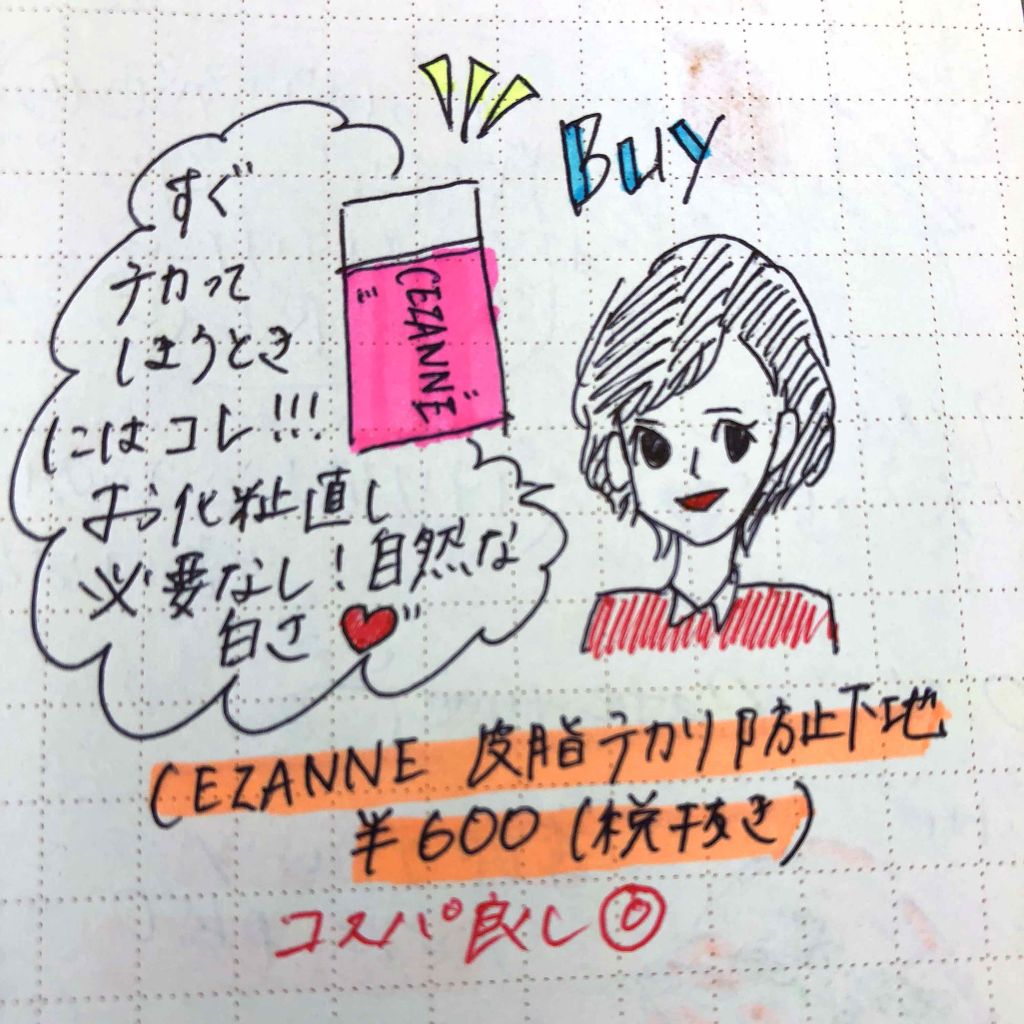 BUY
すぐ
テカって
しまうとき
にはコレ!!!
お化粧直し
必要なし!自然な
白さ
CEZANNE
CEZANNE 皮脂テカリ防止下地
¥600(税抜き)
コスパ良し◎